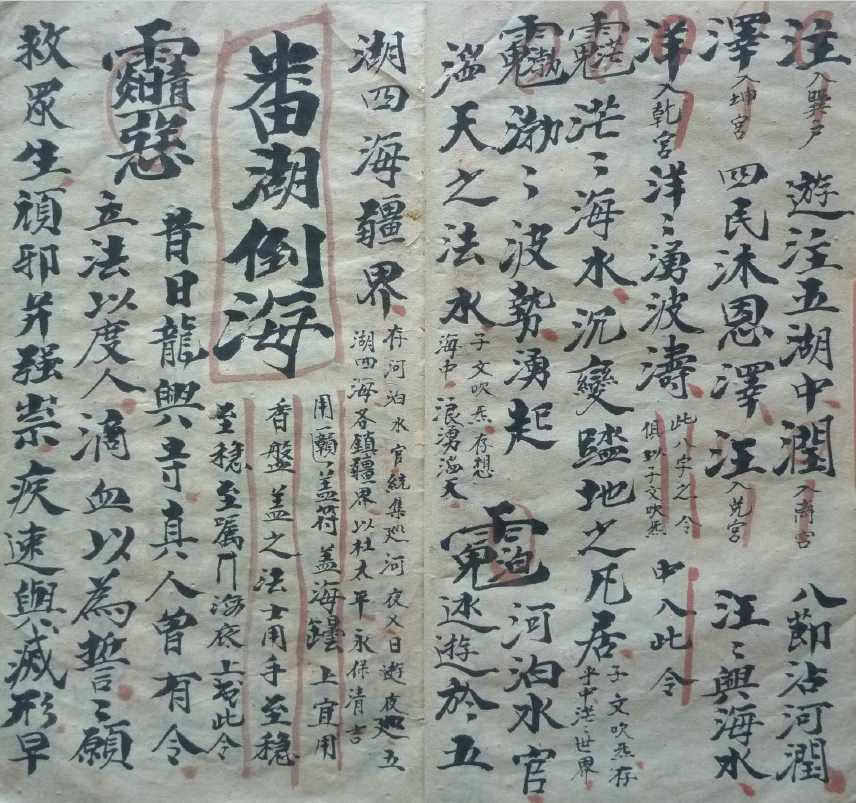 注入巽户 遊注五湖中潤入离宮 八節沾河潤
澤入坤宮 四民沐恩澤汪入兑宮 汪〻興海水
洋入乾宮洋〻湧波濤 此八字之令
俱以子文吹炁 中入此令
茫〻海水沉變踏地之凡居 子文吹炁存
半中茫〻世界
渤〻波勢湧起 河泊水官
天之法水 子文吹炁存想
海中浪湧天 遊於五
湖四海疆界 存河泊水官統集巡河夜乂日遊夜巡五
湖四海各鎮疆界以杜太平永保清吉
番湖倒海
用 盖符盖海 上宜用
香盤盖之法士用手至穩
至穩至嘱 海底上書此令
昔日龍興寺真人曾有令
立法以度人滴血以為誓〻願
救眾生頑邪并强祟疾速與滅形早